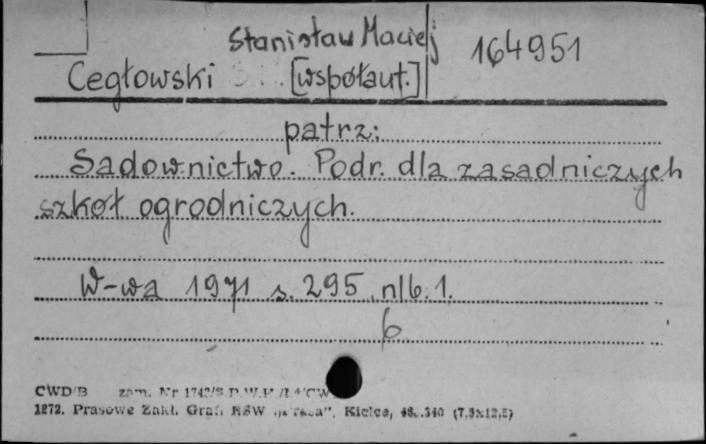 Stanisław Maciej 164951
Cegłowski [współaut.]
patrz:
Sadownictwo. Podr. dla zasadniczych
szkół ogrodniczych.
W-wa 1971 s. 295, nlb. 1.
6
CWD/B zam. Nr
1272. Prasowe Zakł. Graf. RSW „Prasa”, Kielce, (7,5x12,5)